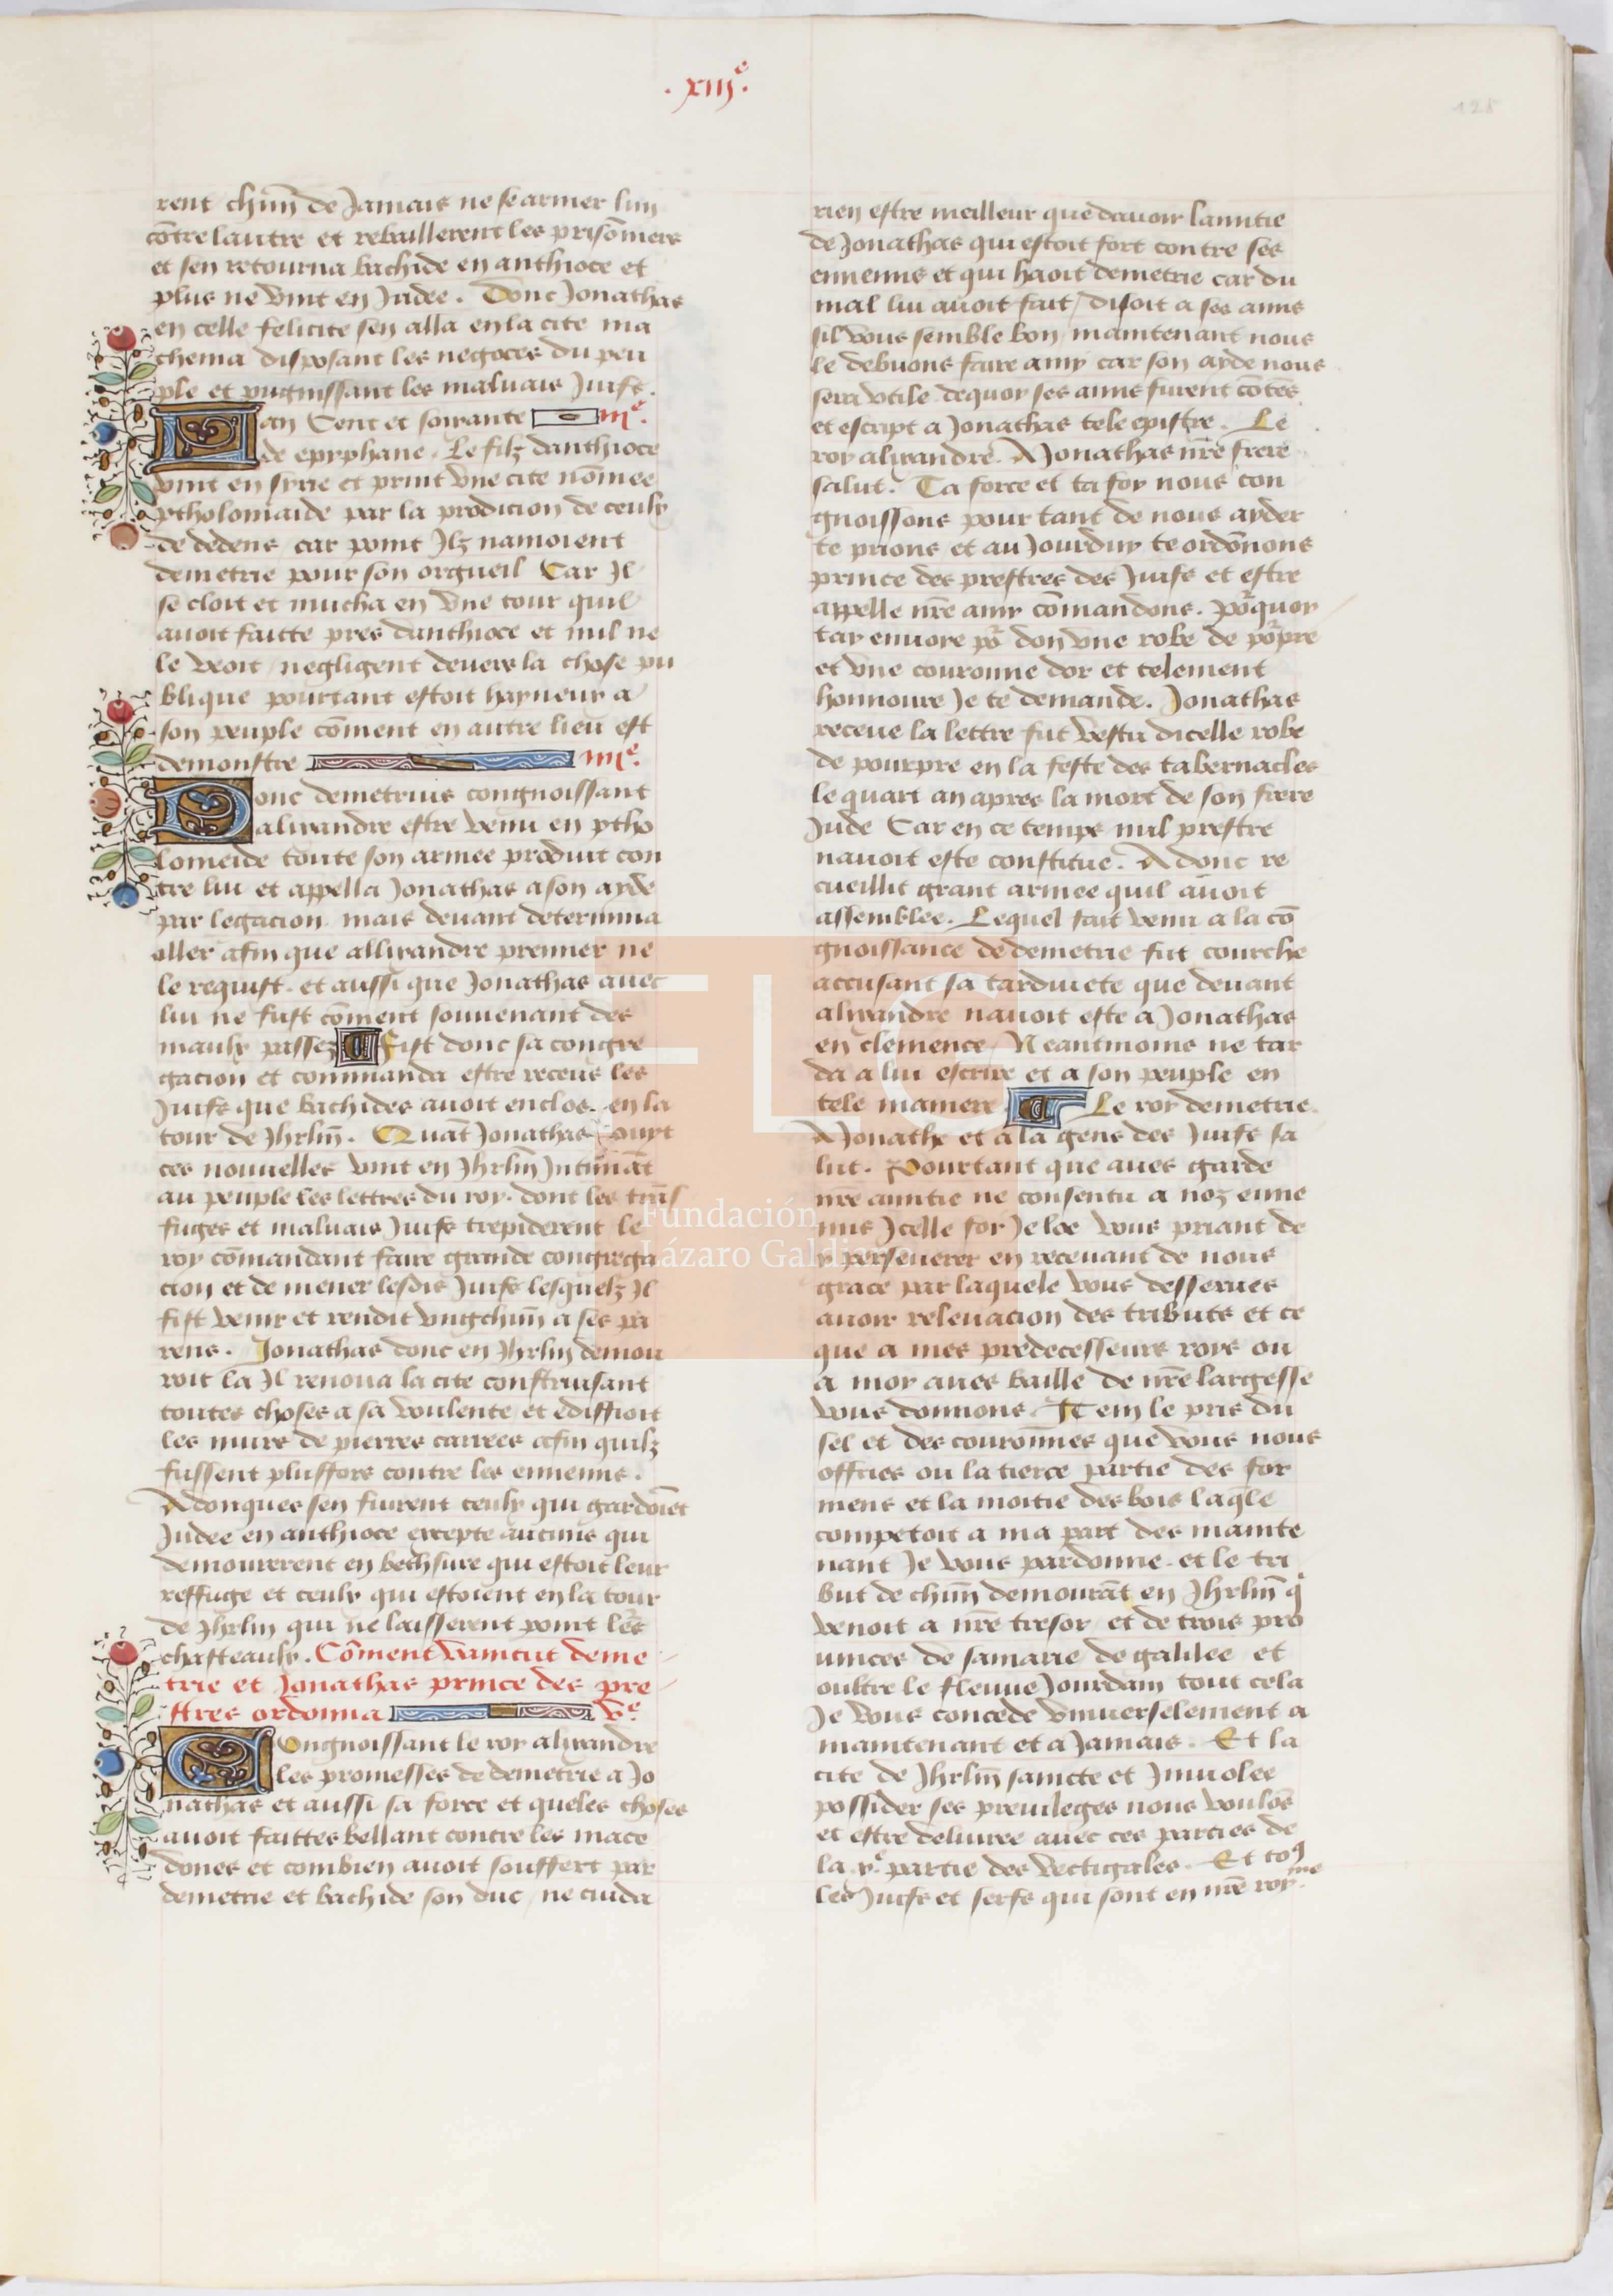 .xiiie.
128
rent chūn de Jamais ne se armer lun
cōtre lautre et rebaillerent les prisōniers
et sen retourna bachide en anthioce et
plus ne vint en Judee. Donc Jonathas
en celle felicite sen alla en la cite ma
chema disposant les negoces du peu
ple et pugnissant les maluais Juifs.
Lan Cent et soixante iiie.
de epyphane. Le filz danthioce
vint en syrie et print vne cite nōmee
ptholomaide par la prodicion de ceulx
de dedens / car point Ilz namoient
demetrie pour son orgueil Car Il
se cloit et mucha en vne tour quil
auoit faitte pres danthioce et nul ne
le veoit / negligent deuers la chose pu
blique pourtant estoit hayneux a
son peuple cōment en autre lieu est
demonstre iiiie.
Donc demetrius congnoissant
alixandre estre venu en ptho
lomeide toute son armee produit con
tre lui et appella Jonathas a son ayde
par legacion mais deuant determina
aller afin que allixandre premier ne
le requist. et aussi que Jonathas auec
lui ne fust cōment souuenant des
maulx passez Fist donc sa congre
gacion et commanda estre receus les
Juifs que bachides auoit enclos. en la
tour de Jhrlm̄. Quāt Jonathas ouyt
ces nouuelles vint en Jhrlm̄ Intimāt
au peuple les lettres du roy. dont les trās
fuges et maluais Juifs trepiderent le
roy cōmandant faire grande congrega
cion et de mener lesdis Juifs lesquelz Il
fist venir et rendit vngchūn a ses pa
rens. Jonathas donc en Jhrlm̄ demou
roit la Il renoua la cite construisant
toutes choses a sa voulente et ediffioit
les murs de pierres carrees afin quilz
fussent plusffors contre les ennemis.
Adonques sen fuirent ceulx qui gardoiēt
Judee en anthioce excepte aucuns qui
demourerent en bethsure qui estoit leur
reffuge et ceulx qui estoient en la tour
de Jhrlm̄ qui ne laisserent point les
chasteaulx. Cōment vaincut deme
trie et Jonathas prince des pre
stres ordonna ve.
Congnoissant le roy alixandre
les promesses de demetrie a Jo
nathas et aussi sa force et queles choses
auoit faittes bellant contre les mace
dones et combien auoit souffert par
demetrie et bachide son duc / ne cuida
rien estre meilleur que dauoir lamitie
de Jonathas qui estoit fort contre ses
ennemis et qui haoit demetrie car du
mal lui auoit fait / disoit a ses amis
sil vous semble bon / maintenant nous
le debuons faire amy car son ayde nous
sera vtile dequoy ses amis furent cōtēs
et escript a Jonathas tele epistre. Le
roy alixandre. A Jonathas nr̄e frere
salut. Ta force et ta foy nous con
gnoissons pour tant de nous ayder
te prions et au Jourduy te ordōnons
prince des prestres des Juifs et estre
appelle nr̄e amy cōmandons. pōrquoy
tay enuoye pō don vne robe de pōrpre
et vne couronne dor et telement
honnoure Je te demande. Jonathas
receue la lettre fut vestu dicelle robe
de pourpre en la feste des tabernacles
le quart an apres la mort de son frere
Jude Car en ce temps nul prestre
nauoit este constitue. Adonc re
cueillit grant armee quil auoit
assemblee. Lequel fait venu a la cō
gnoissance de demetrie fut courche
accusant sa tarduiete que deuant
alixandre nauoit este a Jonathas
en clemence / Neantmoins ne tar
da a lui escrire et a son peuple en
tele maniere Le roy demetrie.
A Jonathe et a la gens des Juifs sa
lut. Pourtant que aues garde
nr̄e amitie ne consentu a noz enne
mis Icelle foy Je loe vous priant de
y perseuerer en receuant de nous
grace par laquele vous desserues
auoir releuacion des tributs et ce
que a mes predecesseurs roys ou
a moy aues baille de nr̄e largesse
vous donnons. Item le pris du
sel et des courōnnes que vous nous
offries ou la tierce partie des for
mens et la moitie des bois laq̄le
competoit a ma part des mainte
nant Je vous pardonne. et le tri
but de chūn demourāt en Jhrlm̄ q̄
venoit a nr̄e tresor / et de trois pro
uinces de samarie de galilee et
oultre le fleuue Jourdain tout cela
Je vous concede vniuerselement a
maintenant et a Jamais. Et la
cite de Jhrlm̄ saincte et Inuolee
possider ses preuileges nous voulōs
et estre deliuree auec ces parties de
la xe. partie des vectigales. Et to9
les Juifs et serfs qui sont en nr̄e roy.me
FLG
Fundación
Lázaro Galdiano